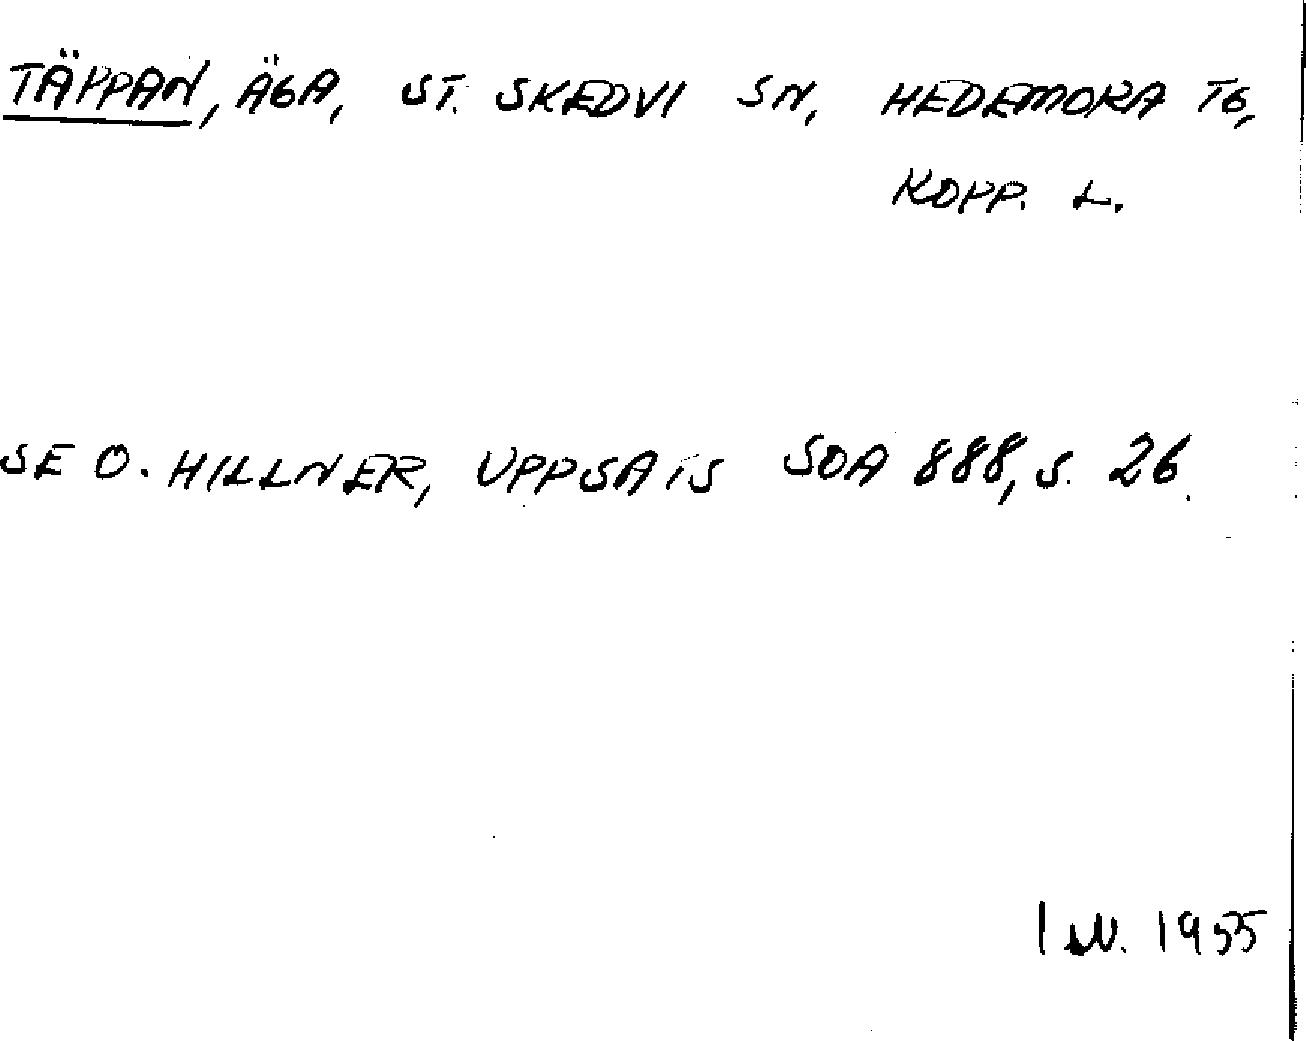 TÄPPAN, ÄGA, ST. SKEDVI SN, HEDEMORA TG,
KOPP. L.
SE O. HILLNER, UPPSATS SOA 888, S. 26.
1955